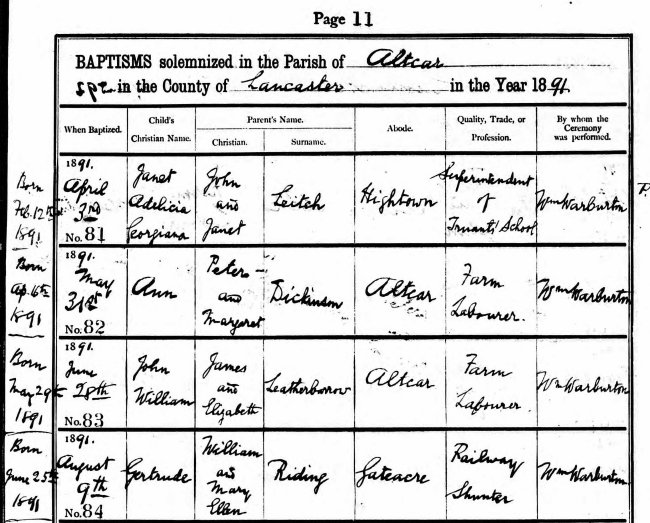 Page 11
BAPTISMS solemnized in the Parish of Altcar
in the County of Lancaster in the Year 1891.
When Baptized. Child's Christian Name. Parent's Name. Christian. Surname. Abode. Quality, Trade, or Profession. By whom the Ceremony was performed.
Born Feb. 12th 1891
1891. April 3rd No. 81
Janet Adelicia Georgiana
John and Janet
Leitch
Hightown
Superintendent of Truants' School
Wm Warburton
Born Ap. 16th 1891
1891. May 31st No. 82
Ann
Peter and Margaret
Dickinson
Altcar
Farm Labourer.
Wm Warburton
Born May 29th 1891
1891. June 28th No. 83
John William
James and Elizabeth
Leatherbarrow
Altcar
Farm Labourer.
Wm Warburton
Born June 25th 1891
1891. August 9th No. 84
Gertrude
William and Mary Ellen
Riding
Gateacre
Railway Shunter
Wm Warburton